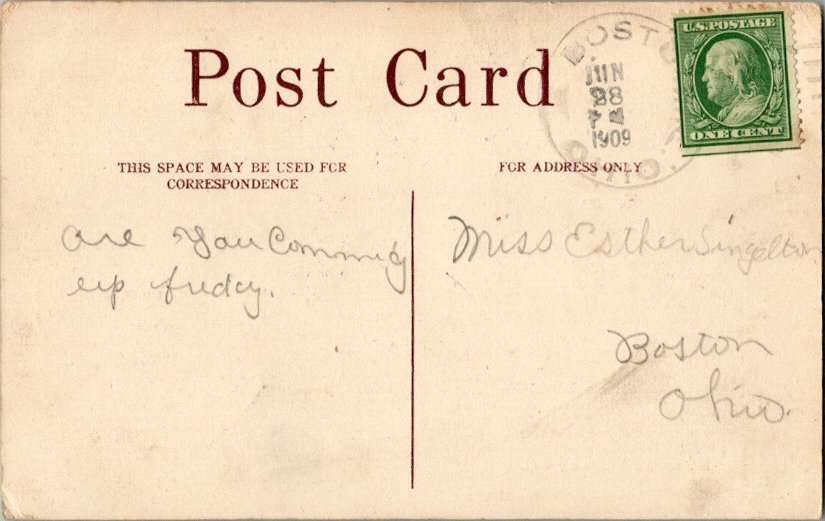 Post Card
BOSTO
JUN
28
P M
1909
OHIO.
U.S. POSTAGE
ONE CENT
THIS SPACE MAY BE USED FOR
CORRESPONDENCE
FOR ADDRESS ONLY
are you Comming
up fridey.
Miss Esther Singelton
Boston
Ohio.